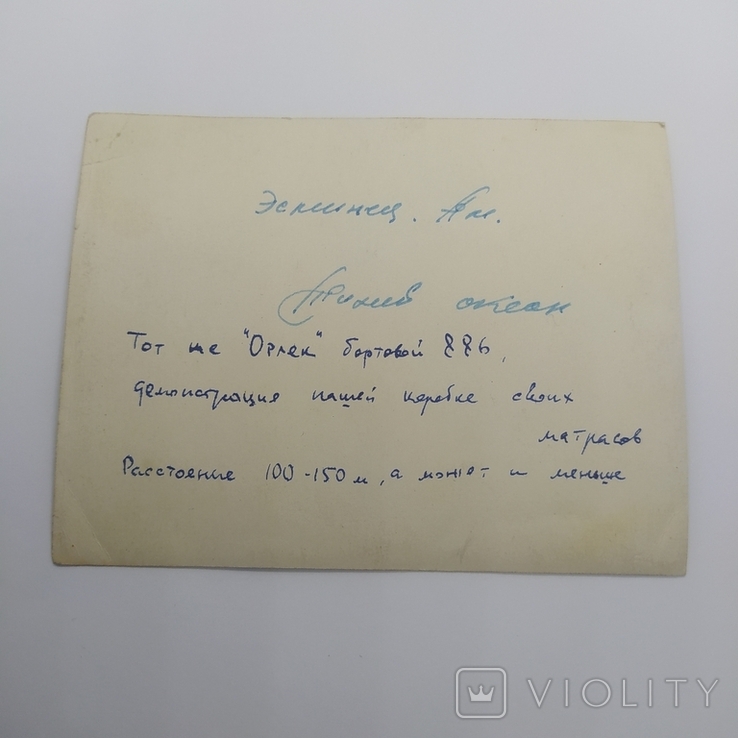 Эсминец. Ам.
Тихий океан
Тот же "Орлек" бортовой 886,
демонстрация нашей коробке своих
матрасов
Расстояние 100-150 м, а может и меньше
VIOLITY